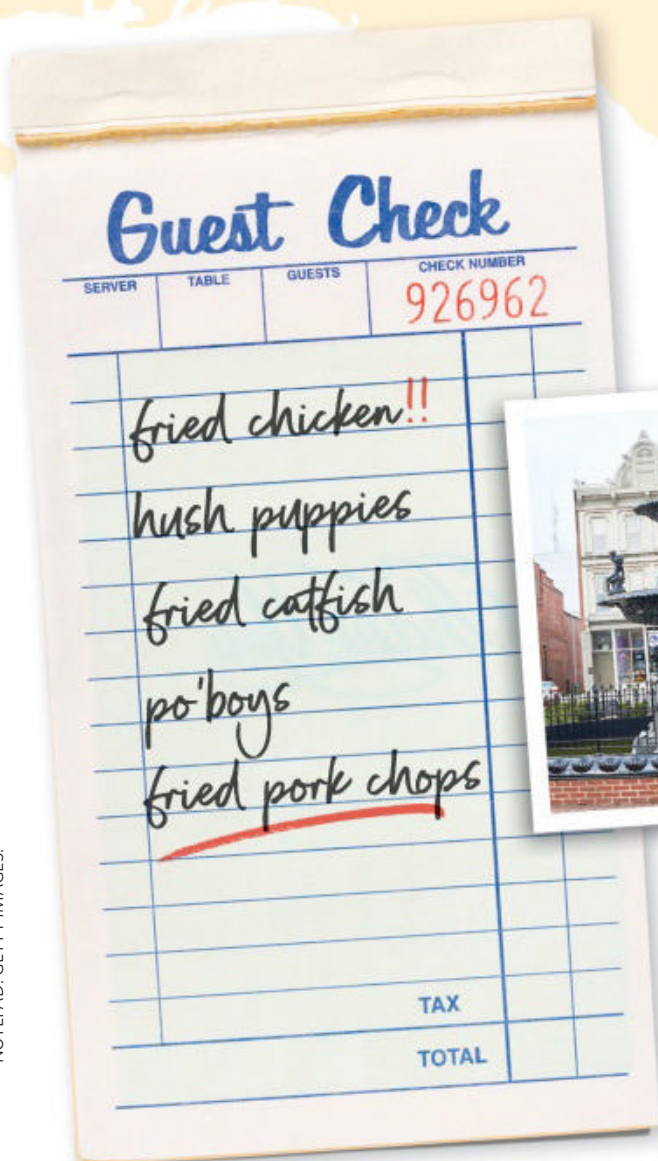 Guest Check
SERVER TABLE GUESTS CHECK NUMBER
926962
fried chicken!!
hush puppies
fried catfish
po'boys
fried pork chops
TAX
TOTAL
NOTEPAD: GETTY IMAGES.